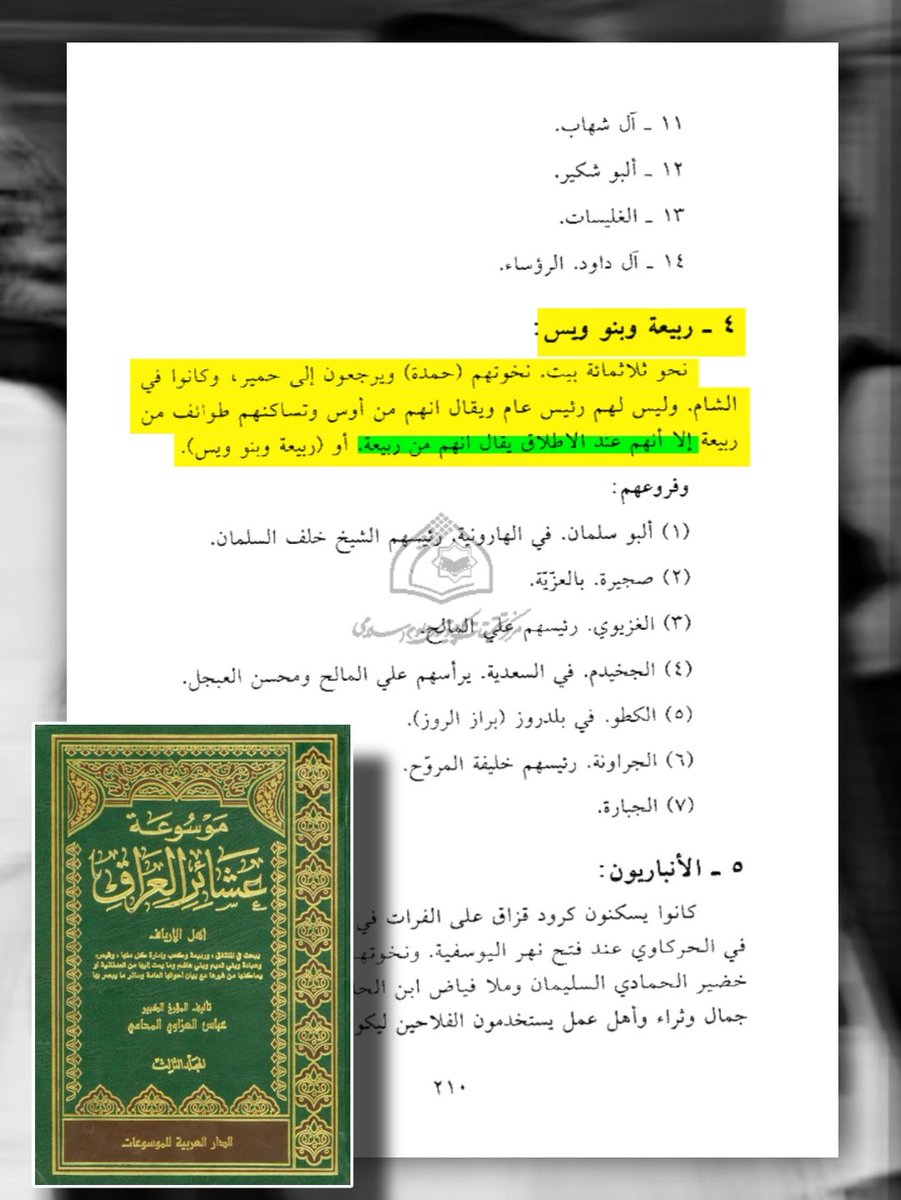 ١١ ـ آل شهاب.
١٢ ـ ألبو شكير.
١٣ ـ الغليسات.
١٤ ـ آل داود. الرؤساء.
٤ ـ ربيعة وبنو ويس:
نحو ثلاثمائة بيت. نخوتهم (حمدة) ويرجعون إلى حمير، وكانوا في
الشام. وليس لهم رئيس عام ويقال انهم من أوس وتساكنهم طوائف من
ربيعة إلا أنهم عند الاطلاق يقال انهم من ربيعة. أو (ربيعة وبنو ويس).
وفروعهم:
(١) ألبو سلمان. في الهارونية. رئيسهم الشيخ خلف السلمان.
(٢) صجيرة. بالعزّيّة.
(٣) الغزيوي. رئيسهم علي المالح.
(٤) الجخيدم. في السعدية. يرأسهم علي المالح ومحسن العبجل.
(٥) الكطو. في بلدروز (براز الروز).
(٦) الجراونة. رئيسهم خليفة المروّح.
(٧) الجبارة.
٥ ـ الأنباريون:
كانوا يسكنون كرود قزاق على الفرات في
في الحركاوي عند فتح نهر اليوسفية. ونخوته
خضير الحمادي السليمان وملا فياض ابن الح
جمال وثراء وأهل عمل يستخدمون الفلاحين ليكو
٢١٠
موسوعة
عشائر العراق
أهل الأرياف
يبحث في المنتفق، وربيعة وكعب وإمارة كل منها، وقيس،
وعبادة وبني تميم وبني هاشم وما يمت إليها من العدنانية أو
يساكنها من غيرها مع بيان أحوالها العامة وسائر ما يبصر بها
تأليف المؤرخ الكبير
عباس العزاوي المحامي
المجلد الثالث
الدار العربية للموسوعات